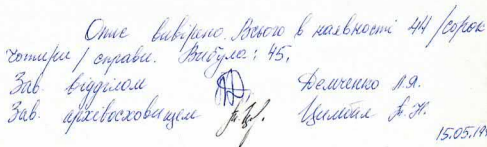 Опис вивірено. Всього в наявності 44 /сорок
чотири/ справи. Вибула: 45.
Зав. відділом Демченко Л.Я.
Зав. архівосховищем Цимбал
15.05.19